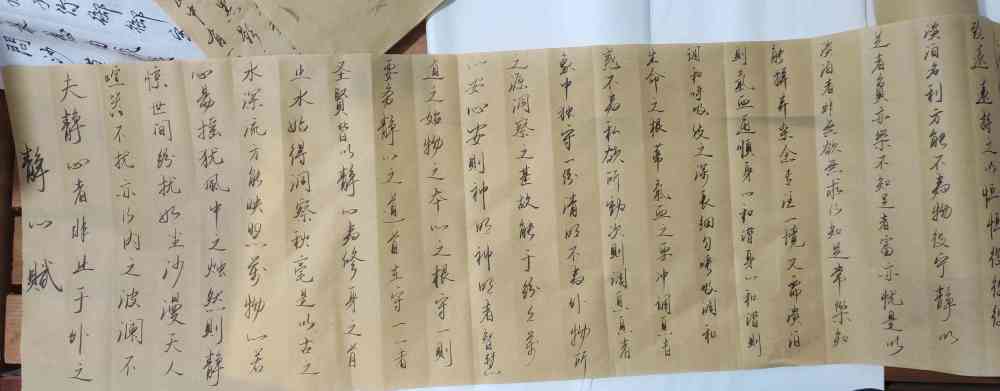 静心賦
夫静心者非止于外之
喧嚣不扰亦乃内之波澜不
惊世间纷扰如尘沙漫天人
心易摇犹風中之烛然則静
水深流方能映照萬物心若
止水始得洞察秋毫是以古之
圣賢皆以静心為修身之首
要者静心之道首在守一一者
道之始物之本心之根守一則
心安心安則神明神明者智慧
之源洞察之基故能于纷乱萬
象中独守一份清明不為外物所
惑不為私欲所動次則调息息者
生命之根蒂氣血之要冲调息者
调和呼吸使之深長细匀呼吸调和
則氣血通顺身心和谐身心和谐則
能摒弃杂念专注一境又需淡泊
淡泊者非無欲無求乃知足常樂知
足者貧亦樂不知足者富亦忧是以
淡泊名利方能不為物役宁静以
致远
持之以恒